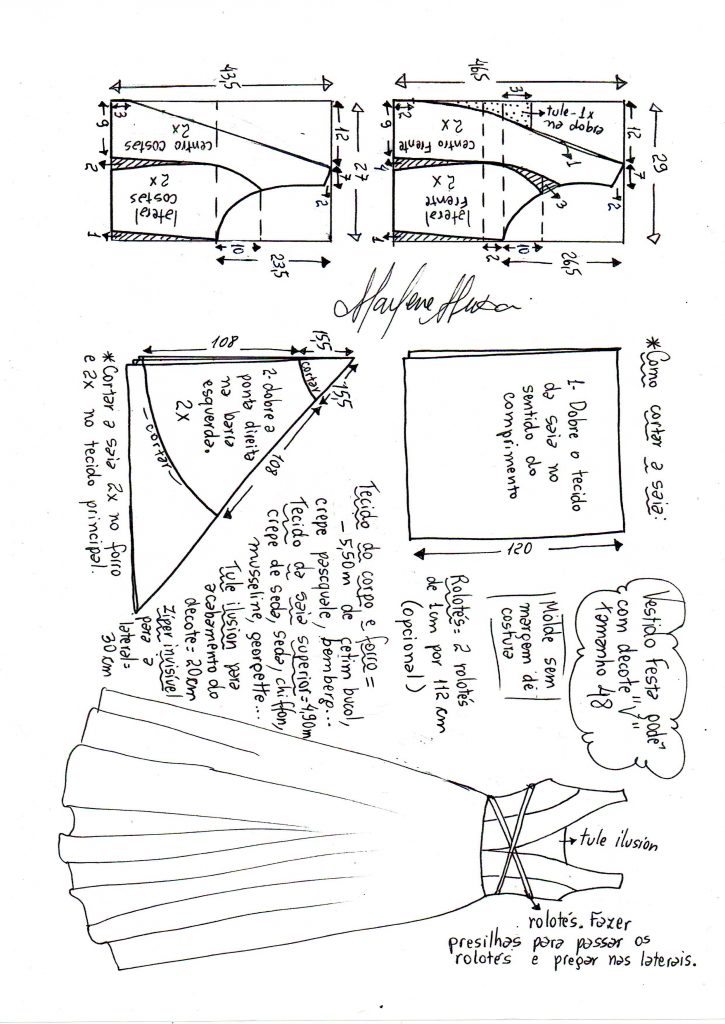 43,5
3
9
centro costas
2x
12
27
2
lateral
costas
2x
7
2
1
10
23,5
46,5
3
tule-1x
dobra eu
2
9
centro Frente
2x
12
29
1
4
lateral
Frente
2x
3
7
2
1
2
10
26,5
Marlene Mukai
*Como cortar a saia:
1- Dobre o tecido
da saia no
sentido do
comprimento
120
108
15,5
15,5
cortar
2- dobre a
ponta direita
na barra
esquerda.
2x
108
cortar
*Cortar a saia 2x no forro
e 2x no tecido principal.
Vestido Festa godê
com decote "V"
tamanho 48
Molde sem
margem de
costura
Rolotês= 2 rolotês
de 1cm por 112 cm
(opcional)
Tecido do corpo e forro =
- 5,50m de cetim bucol,
crepe pascquale, bemberg...
Tecido da saia superior=4,90m
crepe de seda, seda chiffon,
musseline, georgette...
Tule ilusion para
acabamento do
decote = 20cm
Ziper invisível
para a
lateral=
30 cm
tule ilusion
rolotês. Fazer
presilhas para passar os
rolotês e pregar nas laterais.